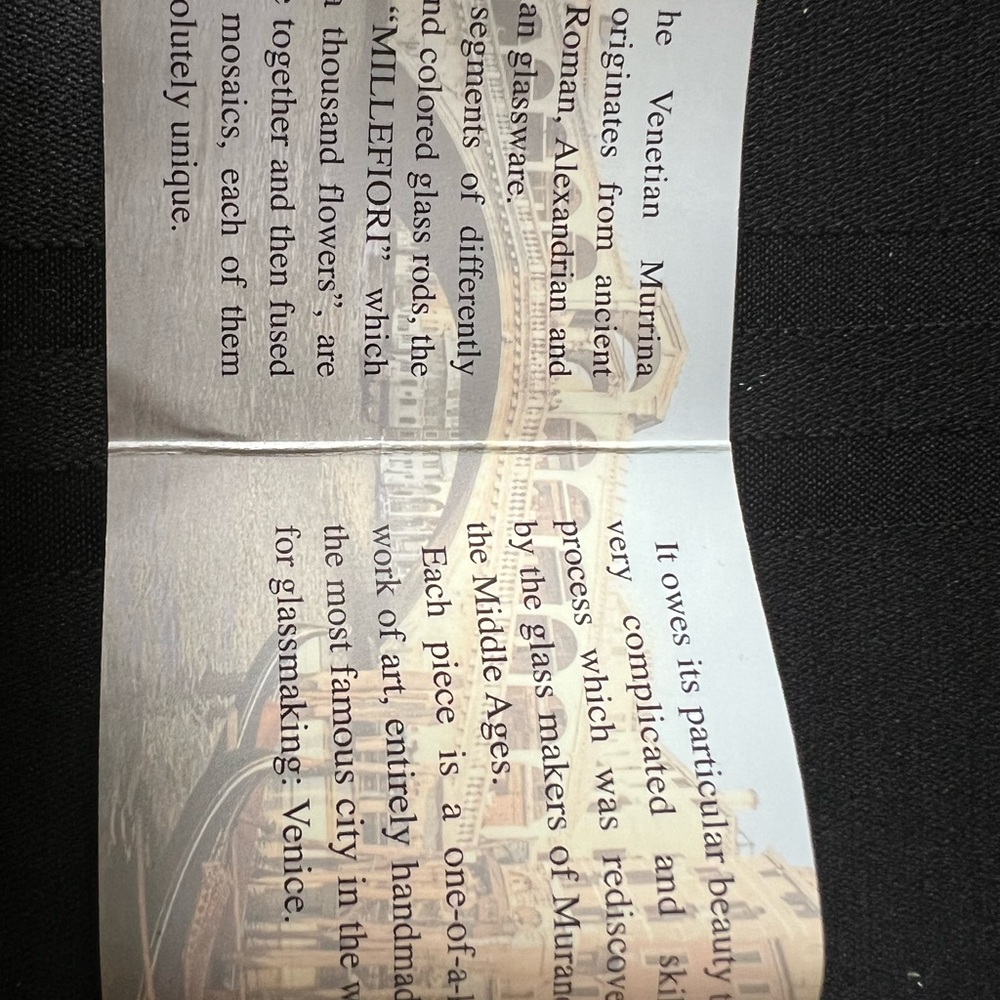 he Venetian Murrina
originates from ancient
Roman, Alexandrian and
an glassware.
segments of differently
nd colored glass rods, the
“MILLEFIORI” which
a thousand flowers”, are
together and then fused
mosaics, each of them
olutely unique.
It owes its particular beauty t
very complicated and ski
process which was rediscove
by the glass makers of Muran
the Middle Ages.
Each piece is a one-of-a-k
work of art, entirely handmad
the most famous city in the w
for glassmaking: Venice.